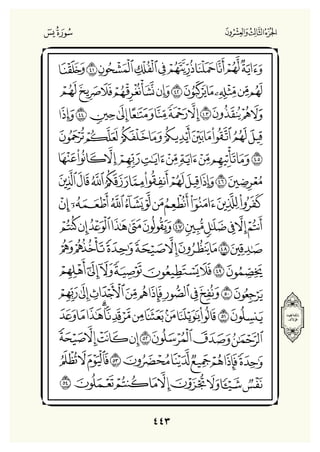 الجزء الثالث والعشرون سورة يس
وَءَايَةٌ لَّهُمْ أَنَّا حَمَلْنَا ذُرِّيَّتَهُمْ فِي الْفُلْكِ الْمَشْحُونِ ٤١ وَخَلَقْنَا
لَهُم مِّن مِّثْلِهِ مَا يَرْكَبُونَ ٤٢ وَإِن نَّشَأْ نُغْرِقْهُمْ فَلَا صَرِيخَ لَهُمْ
وَلَا هُمْ يُنقَذُونَ ٤٣ إِلَّا رَحْمَةً مِّنَّا وَمَتَاعًا إِلَىٰ حِينٍ ٤٤ وَإِذَا
قِيلَ لَهُمُ اتَّقُوا مَا بَيْنَ أَيْدِيكُمْ وَمَا خَلْفَكُمْ لَعَلَّكُمْ تُرْحَمُونَ
٤٥ وَمَا تَأْتِيهِم مِّنْ ءَايَةٍ مِّنْ ءَايَٰتِ رَبِّهِمْ إِلَّا كَانُوا عَنْهَا
مُعْرِضِينَ ٤٦ وَإِذَا قِيلَ لَهُمْ أَنفِقُوا مِمَّا رَزَقَكُمُ اللَّهُ قَالَ الَّذِينَ
كَفَرُوا لِلَّذِينَ ءَامَنُوا أَنُطْعِمُ مَن لَّوْ يَشَاءُ اللَّهُ أَطْعَمَهُ إِنْ
أَنتُمْ إِلَّا فِي ضَلَٰلٍ مُّبِينٍ ٤٧ وَيَقُولُونَ مَتَىٰ هَٰذَا الْوَعْدُ إِن كُنتُمْ
صَٰدِقِينَ ٤٨ مَا يَنظُرُونَ إِلَّا صَيْحَةً وَٰحِدَةً تَأْخُذُهُمْ وَهُمْ
يَخِصِّمُونَ ٤٩ فَلَا يَسْتَطِيعُونَ تَوْصِيَةً وَلَا إِلَىٰ أَهْلِهِمْ
يَرْجِعُونَ ٥٠ وَنُفِخَ فِي الصُّورِ فَإِذَا هُم مِّنَ الْأَجْدَاثِ إِلَىٰ رَبِّهِمْ
يَنسِلُونَ ٥١ قَالُوا يَٰوَيْلَنَا مَن بَعَثَنَا مِن مَّرْقَدِنَا هَٰذَا مَا وَعَدَ
الرَّحْمَٰنُ وَصَدَقَ الْمُرْسَلُونَ ٥٢ إِن كَانَتْ إِلَّا صَيْحَةً
وَٰحِدَةً فَإِذَا هُمْ جَمِيعٌ لَّدَيْنَا مُحْضَرُونَ ٥٣ فَالْيَوْمَ لَا تُظْلَمُ
نَفْسٌ شَيْئًا وَلَا تُجْزَوْنَ إِلَّا مَا كُنتُمْ تَعْمَلُونَ ٥٤
٤٤٣